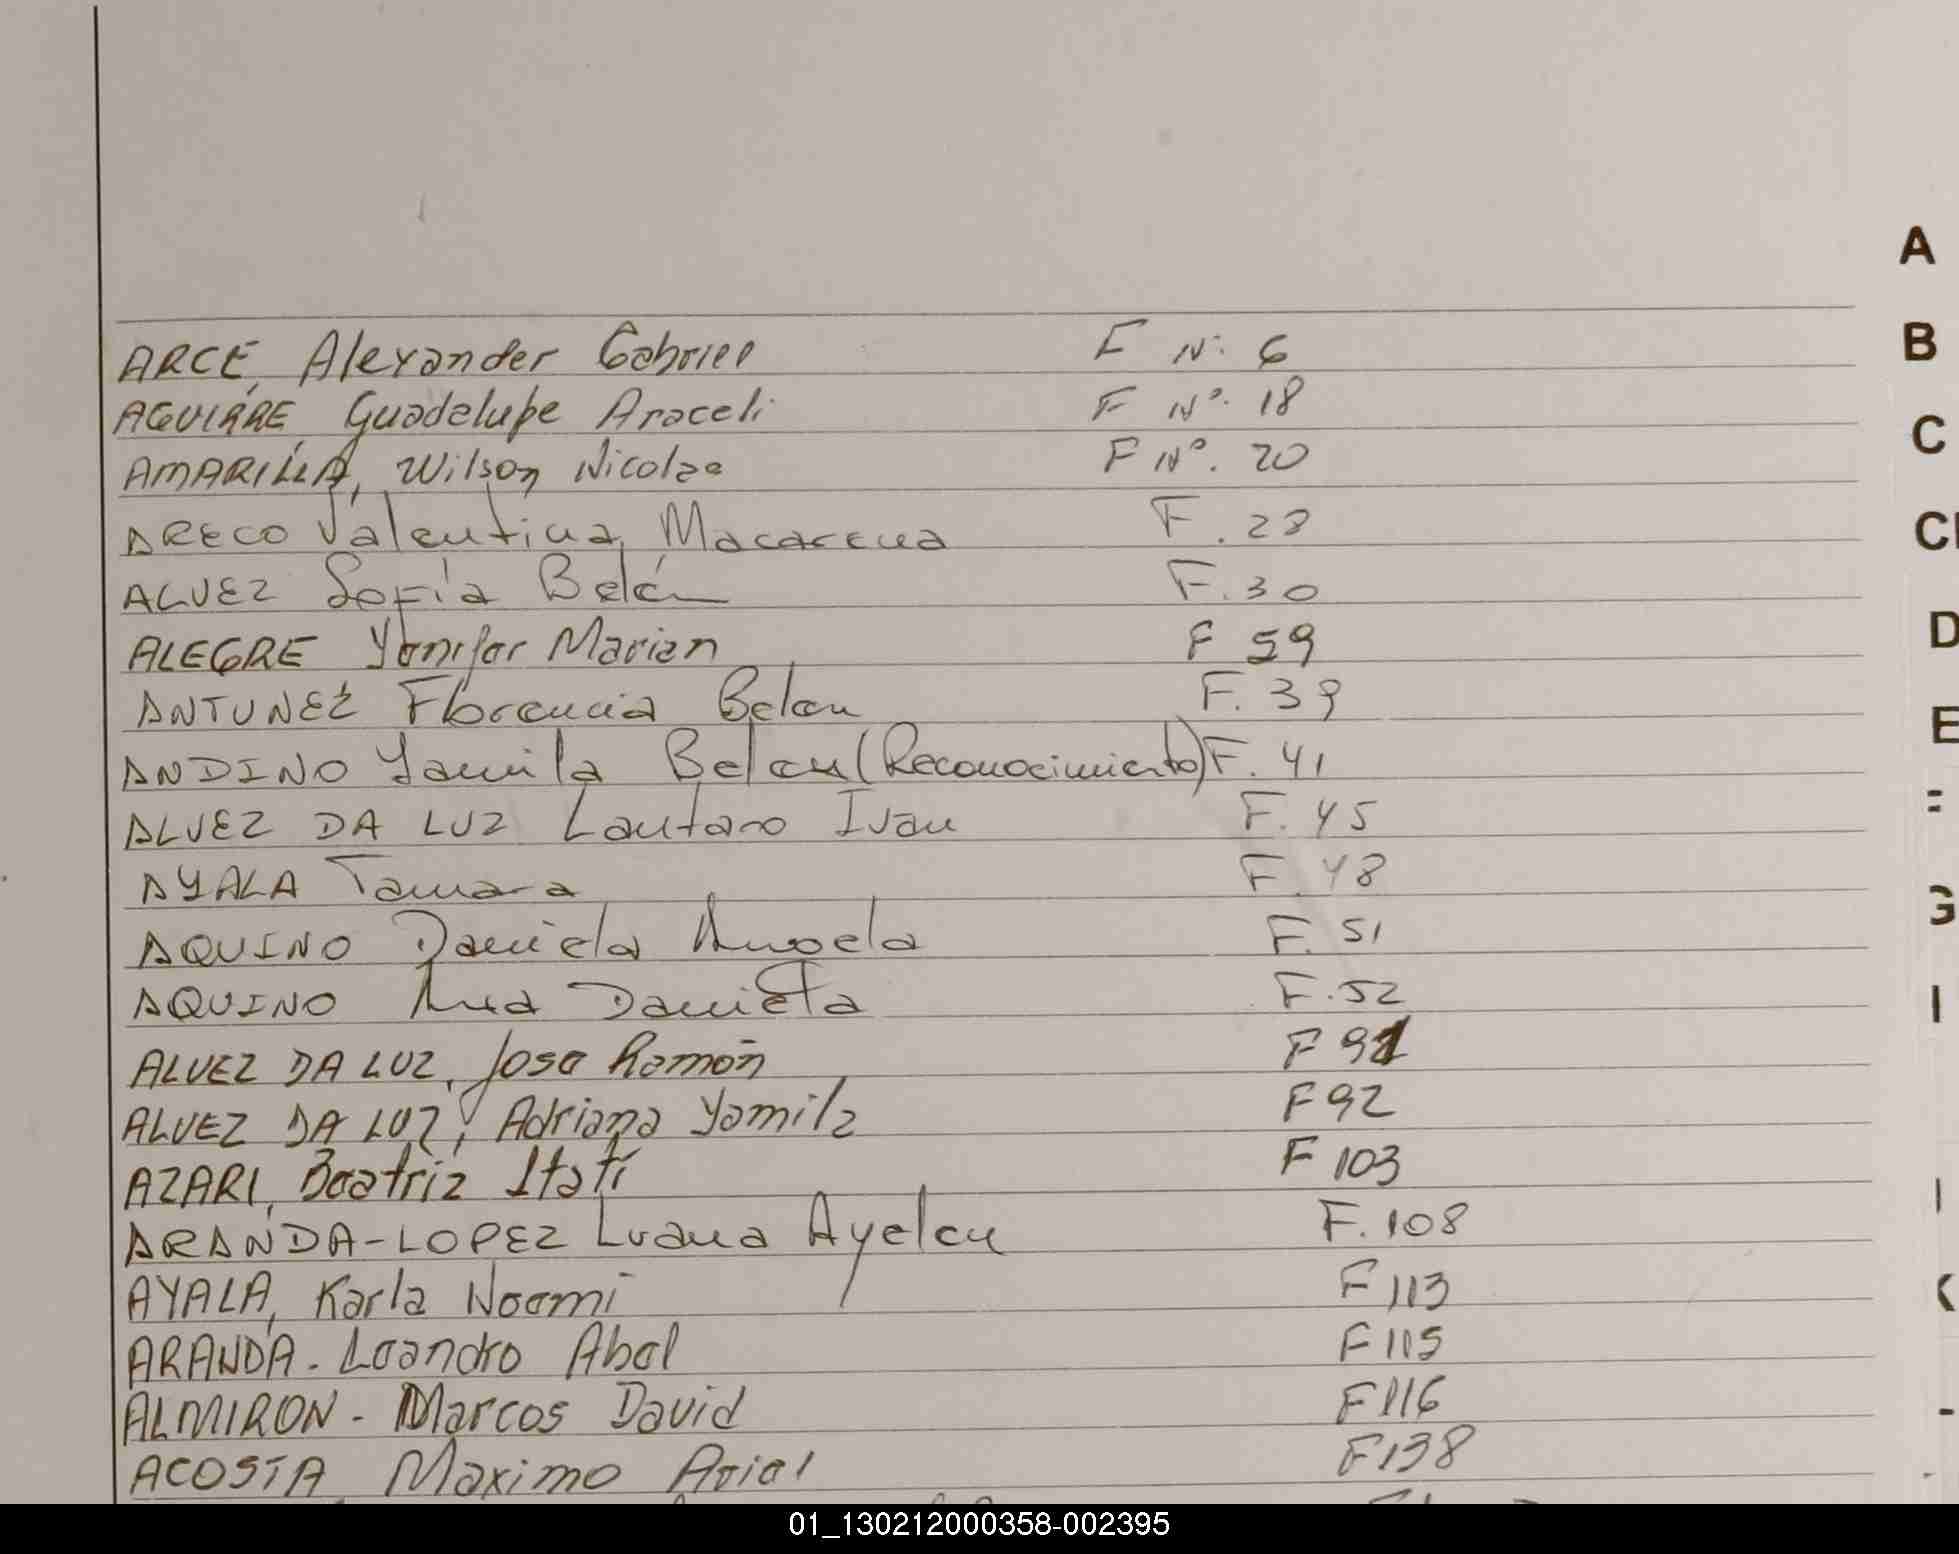 ARCE, Alexander Gabriel F Nº 6
AGUIRRE, Guadelupe Araceli F Nº. 18
AMARILLA, Wilson Nicolas F Nº. 20
ARECO Valentina Macarena F. 28
ALVEZ Sofía Belén F. 30
ALEGRE Yenifer Marian F 59
ANTUNEZ Florencia Belen F. 39
ANDINO Yamila Belen (Reconocimiento) F. 41
ALVEZ DA LUZ Lautaro Ivan F. 45
AYALA Tamara F. 48
AQUINO Daniela Angela F. 51
AQUINO Ana Daniela F. 52
ALVEZ DA LUZ, Jose Ramón F 91
ALVEZ DA LUZ, Adriana Yamila F 92
AZARI, Beatriz Itatí F 103
ARANDA-LOPEZ Luana Ayelen F. 108
AYALA, Karla Noemi F 113
ARANDA. Leandro Abel F 115
ALMIRON - Marcos David F 116
ACOSTA Maximo Ariel F 138
A
B
C
D
E
G
I
K
01_130212000358-002395